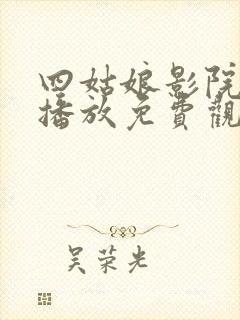 四姑娘影院
播放免費觀
吴荣光